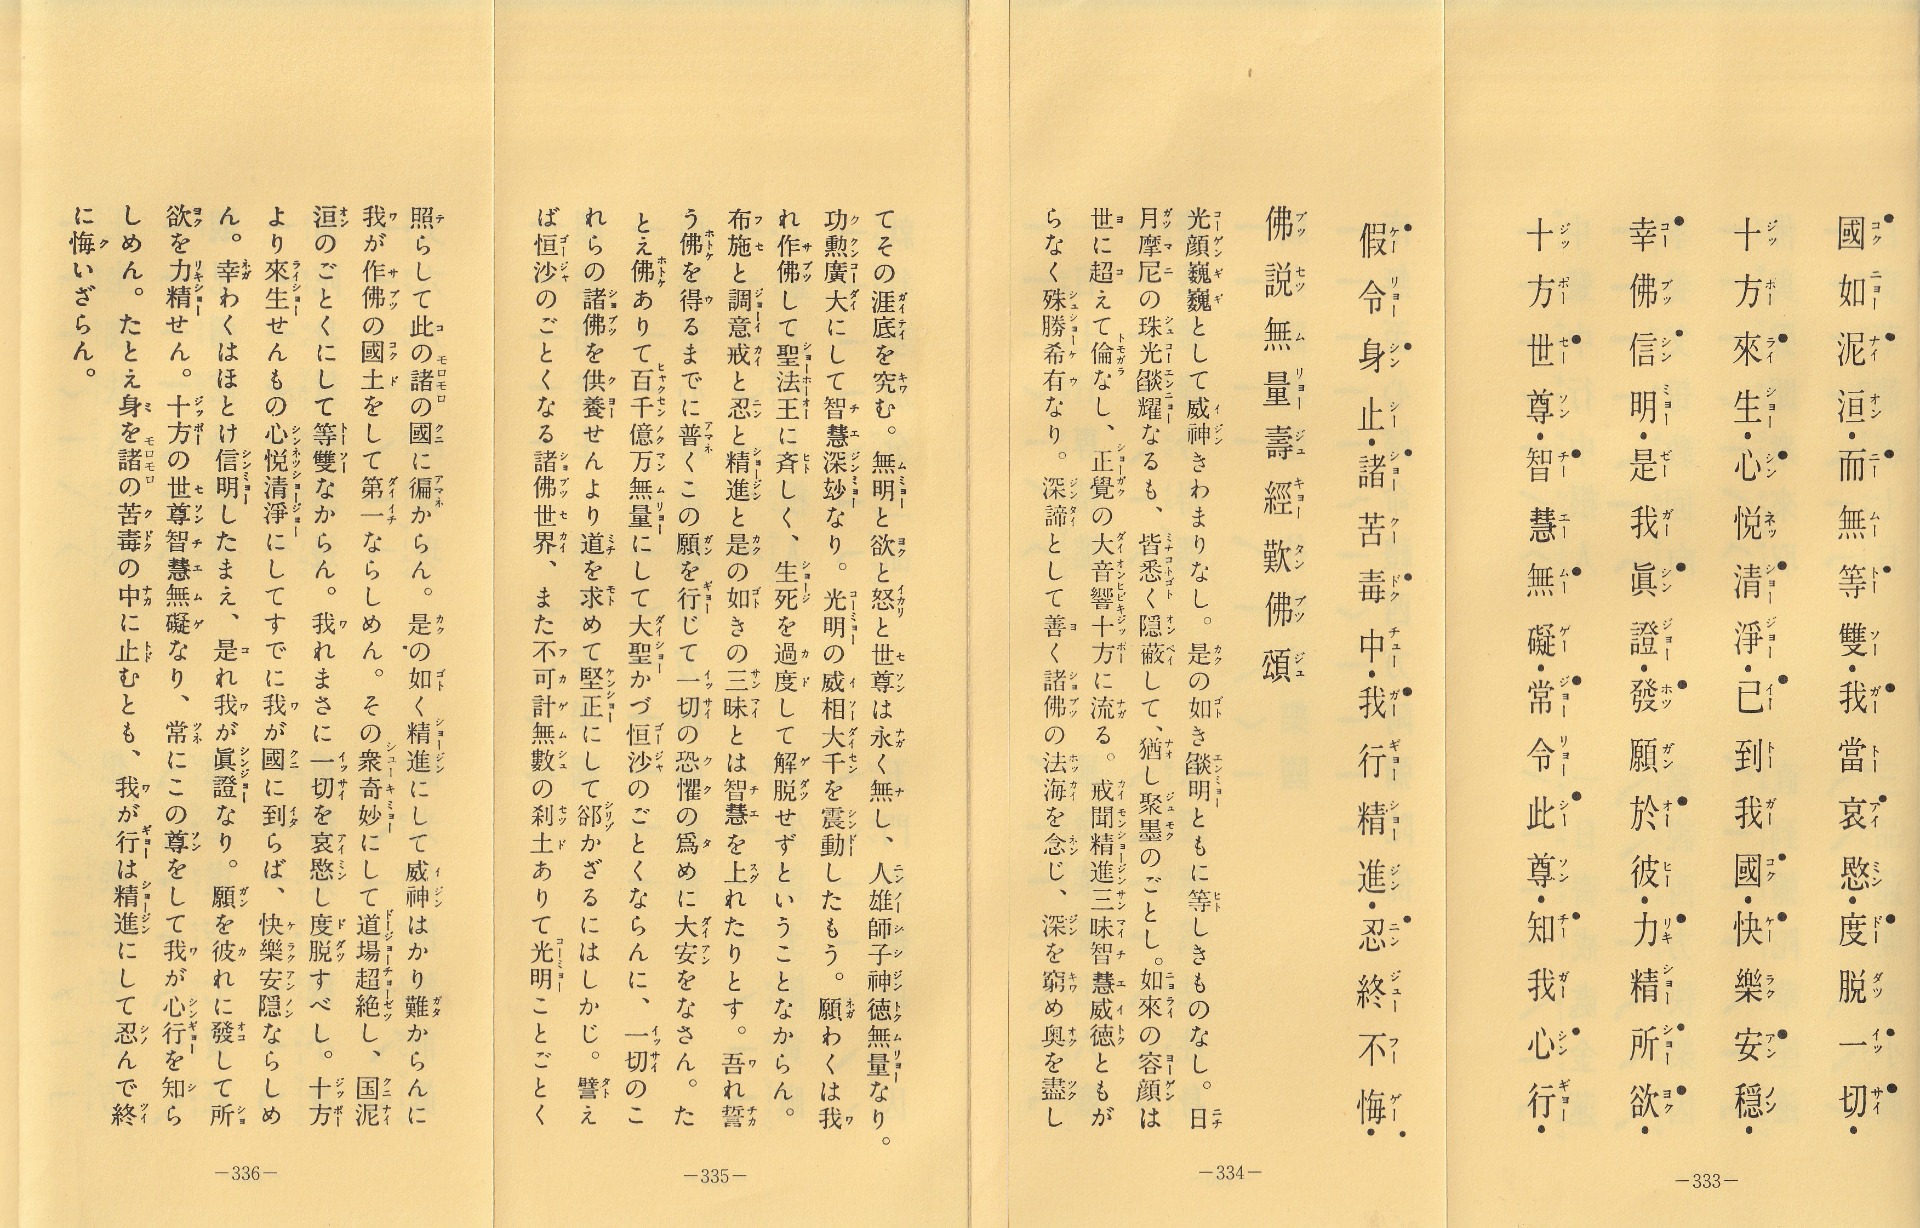 國如泥洹・而無等雙・我當哀愍・度脱一切・
十方來生・心悦清淨・已到我國・快樂安穩・
幸佛信明・是我眞證・發願於彼・力精所欲・
十方世尊・智慧無礙・常令此尊・知我心行・
—333—
假令身止・諸苦毒中・我行精進・忍終不悔・
佛説無量壽經歎佛頌
光顔巍巍として威神きわまりなし。是の如き燄明ともに等しきものなし。日
月摩尼の珠光燄耀なるも、皆悉く隠蔽して、猶し聚墨のごとし。如來の容顔は
世に超えて倫なし、正覺の大音響十方に流る。戒聞精進三昧智慧威德ともが
らなく殊勝希有なり。深諦として善く諸佛の法海を念じ、深を窮め奥を盡し
—334—
てその涯底を究む。無明と欲と怒と世尊は永く無し、人雄師子神德無量なり。
功勲廣大にして智慧深妙なり。光明の威相大千を震動したもう。願わくは我
れ作佛して聖法王に斉しく、生死を過度して解脱せずということなからん。
布施と調意戒と忍と精進と是の如きの三昧とは智慧を上れたりとす。吾れ誓
う佛を得るまでに普くこの願を行じて一切の恐懼の爲めに大安をなさん。た
とえ佛ありて百千億万無量にして大聖かづ恒沙のごとくならんに、一切のこ
れらの諸佛を供養せんより道を求めて堅正にして郤かざるにはしかじ。譬え
ば恒沙のごとくなる諸佛世界、また不可計無數の刹土ありて光明ことごとく
—335—
照らして此の諸の國に徧からん。是の如く精進にして威神はかり難からんに
我が作佛の國土をして第一ならしめん。その衆奇妙にして道場超絶し、国泥
洹のごとくにして等雙なからん。我れまさに一切を哀愍し度脱すべし。十方
より來生せんもの心悦清淨にしてすでに我が國に到らば、快樂安隠ならしめ
ん。幸わくはほとけ信明したまえ、是れ我が眞證なり。願を彼れに發して所
欲を力精せん。十方の世尊智慧無礙なり、常にこの尊をして我が心行を知ら
しめん。たとえ身を諸の苦毒の中に止むとも、我が行は精進にして忍んで終
に悔いざらん。
—336—